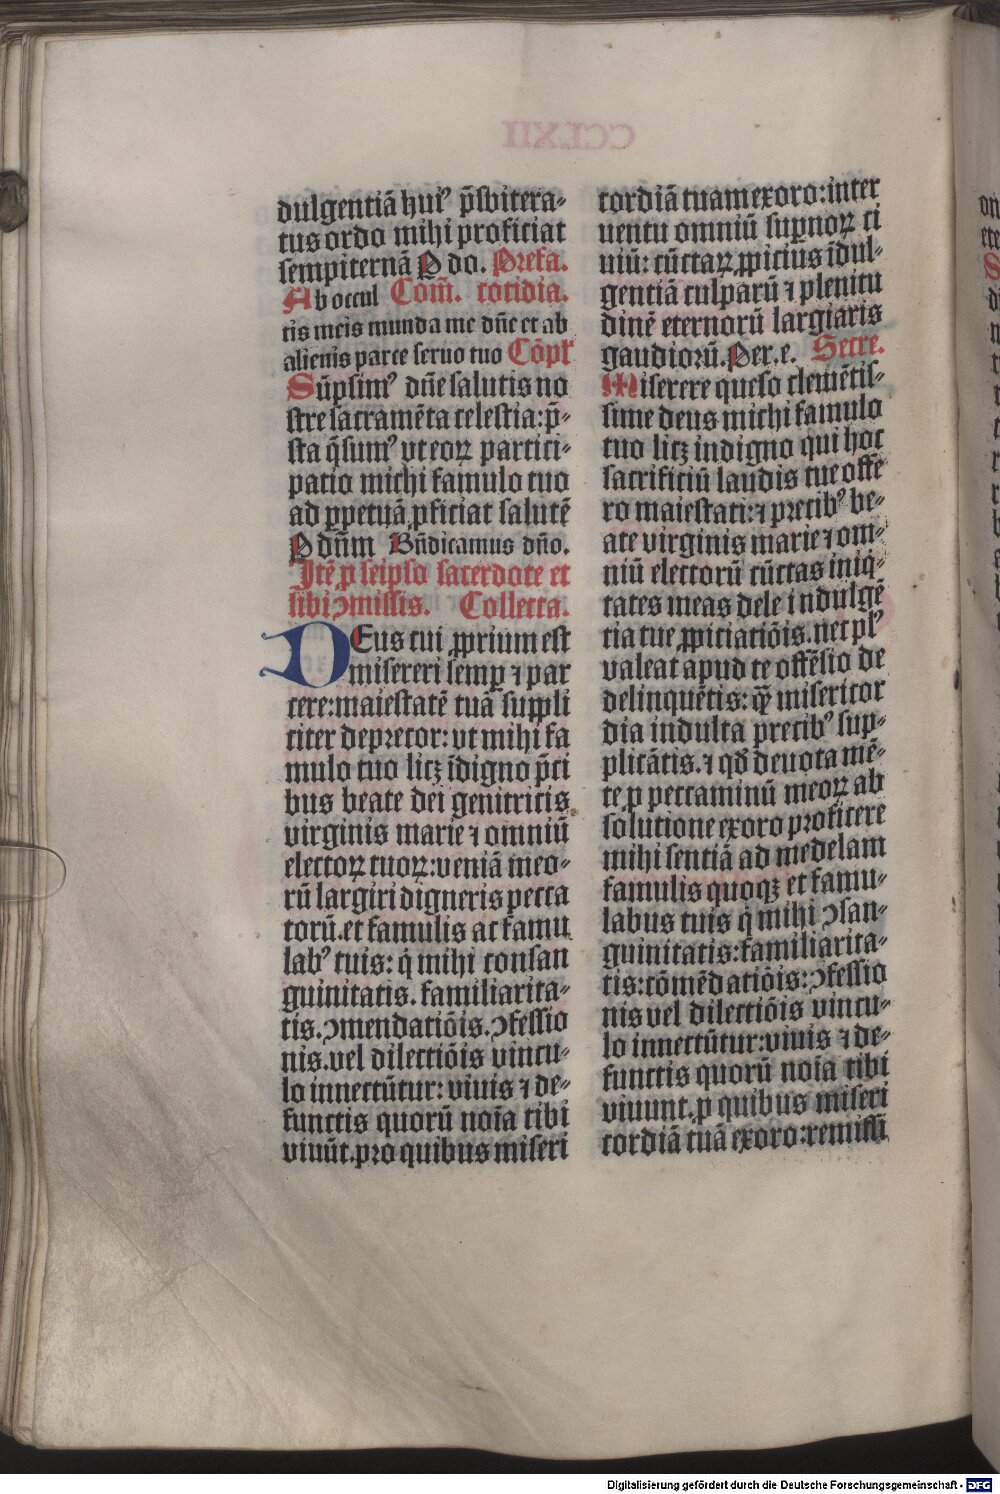 dulgentiā huiꝰ p̄sbitera-
tus ordo mihi proficiat
sempiternā P do. Prefa.
Ab occul Com̄. cotidia.
tis meis munda me dn̄e et ab
alienis parce seruo tuo Cōpl
Sūpsimꝰ dn̄e salutis no
stre sacramēta celestia: p̄-
sta q̄sumꝰ vt eoꝝ partici-
patio michi famulo tuo
ad ꝑpetuā ꝓficiat salutē
P dn̄m Bn̄dicamus dn̄o.
Itē ꝑ seipso sacerdote et
sibi ꝯmissis. Collecta.
DEus cui ꝓprium est
misereri semꝑ ⁊ par
cere: maiestatē tuā suppli
citer deprecor: vt mihi fa
mulo tuo licꝫ īdigno p̄ci
bus beate dei genitricis
virginis marie ⁊ omniū
electoꝝ tuoꝝ: veniā meo-
rū largiri digneris pecca
torū. et famulis ac famu
labꝰ tuis: q̇ mihi consan
guinitatis. familiarita-
tis. ꝯmendatiōis. ꝯfessio
nis. vel dilectiōis vincu-
lo innectūtur: viuis ⁊ de-
functis quorū noīa tibi
viuūt. pro quibus miseri
cordiā tuam exoro: inter
uentu omniū suꝑnoꝝ ci
uiū: cūctaꝝ ꝓpicius īdul-
gentiā culparū ⁊ plenitu
dinē eternorū largiaris
gaudiorū. Per. e. Secre.
Miserere queso clemētis-
sime deus michi famulo
tuo licꝫ indigno qui hoc
sacrificiū laudis tue offe
ro maiestati: ⁊ precibꝰ be-
ate virginis marie ⁊ om-
niū electorū cūctas iniq̇-
tates meas dele indulgē
tia tue ꝓpiciatiōis. nec plꝰ
valeat apud te offēsio de
delinquētis: q̄ȝ misericor
dia indulta precibꝰ sup-
plicātis. ⁊ qd̄ deuota mē-
te ꝑ peccaminū meoꝝ ab
solutione exoro proficere
mihi sentiā ad medelam
famulis quoqꝫ et famu-
labus tuis q̇ mihi ꝯsan-
guinitatis: familiarita-
tis: cōmēdatiōis: ꝯfessio
nis vel dilectiōis vincu-
lo innectūtur: viuis ⁊ de-
functis quorū noīa tibi
viuunt. ꝑ quibus miseri
cordiā tuā exoro: remissi
Digitalisierung gefördert durch die Deutsche Forschungsgemeinschaft - DFG